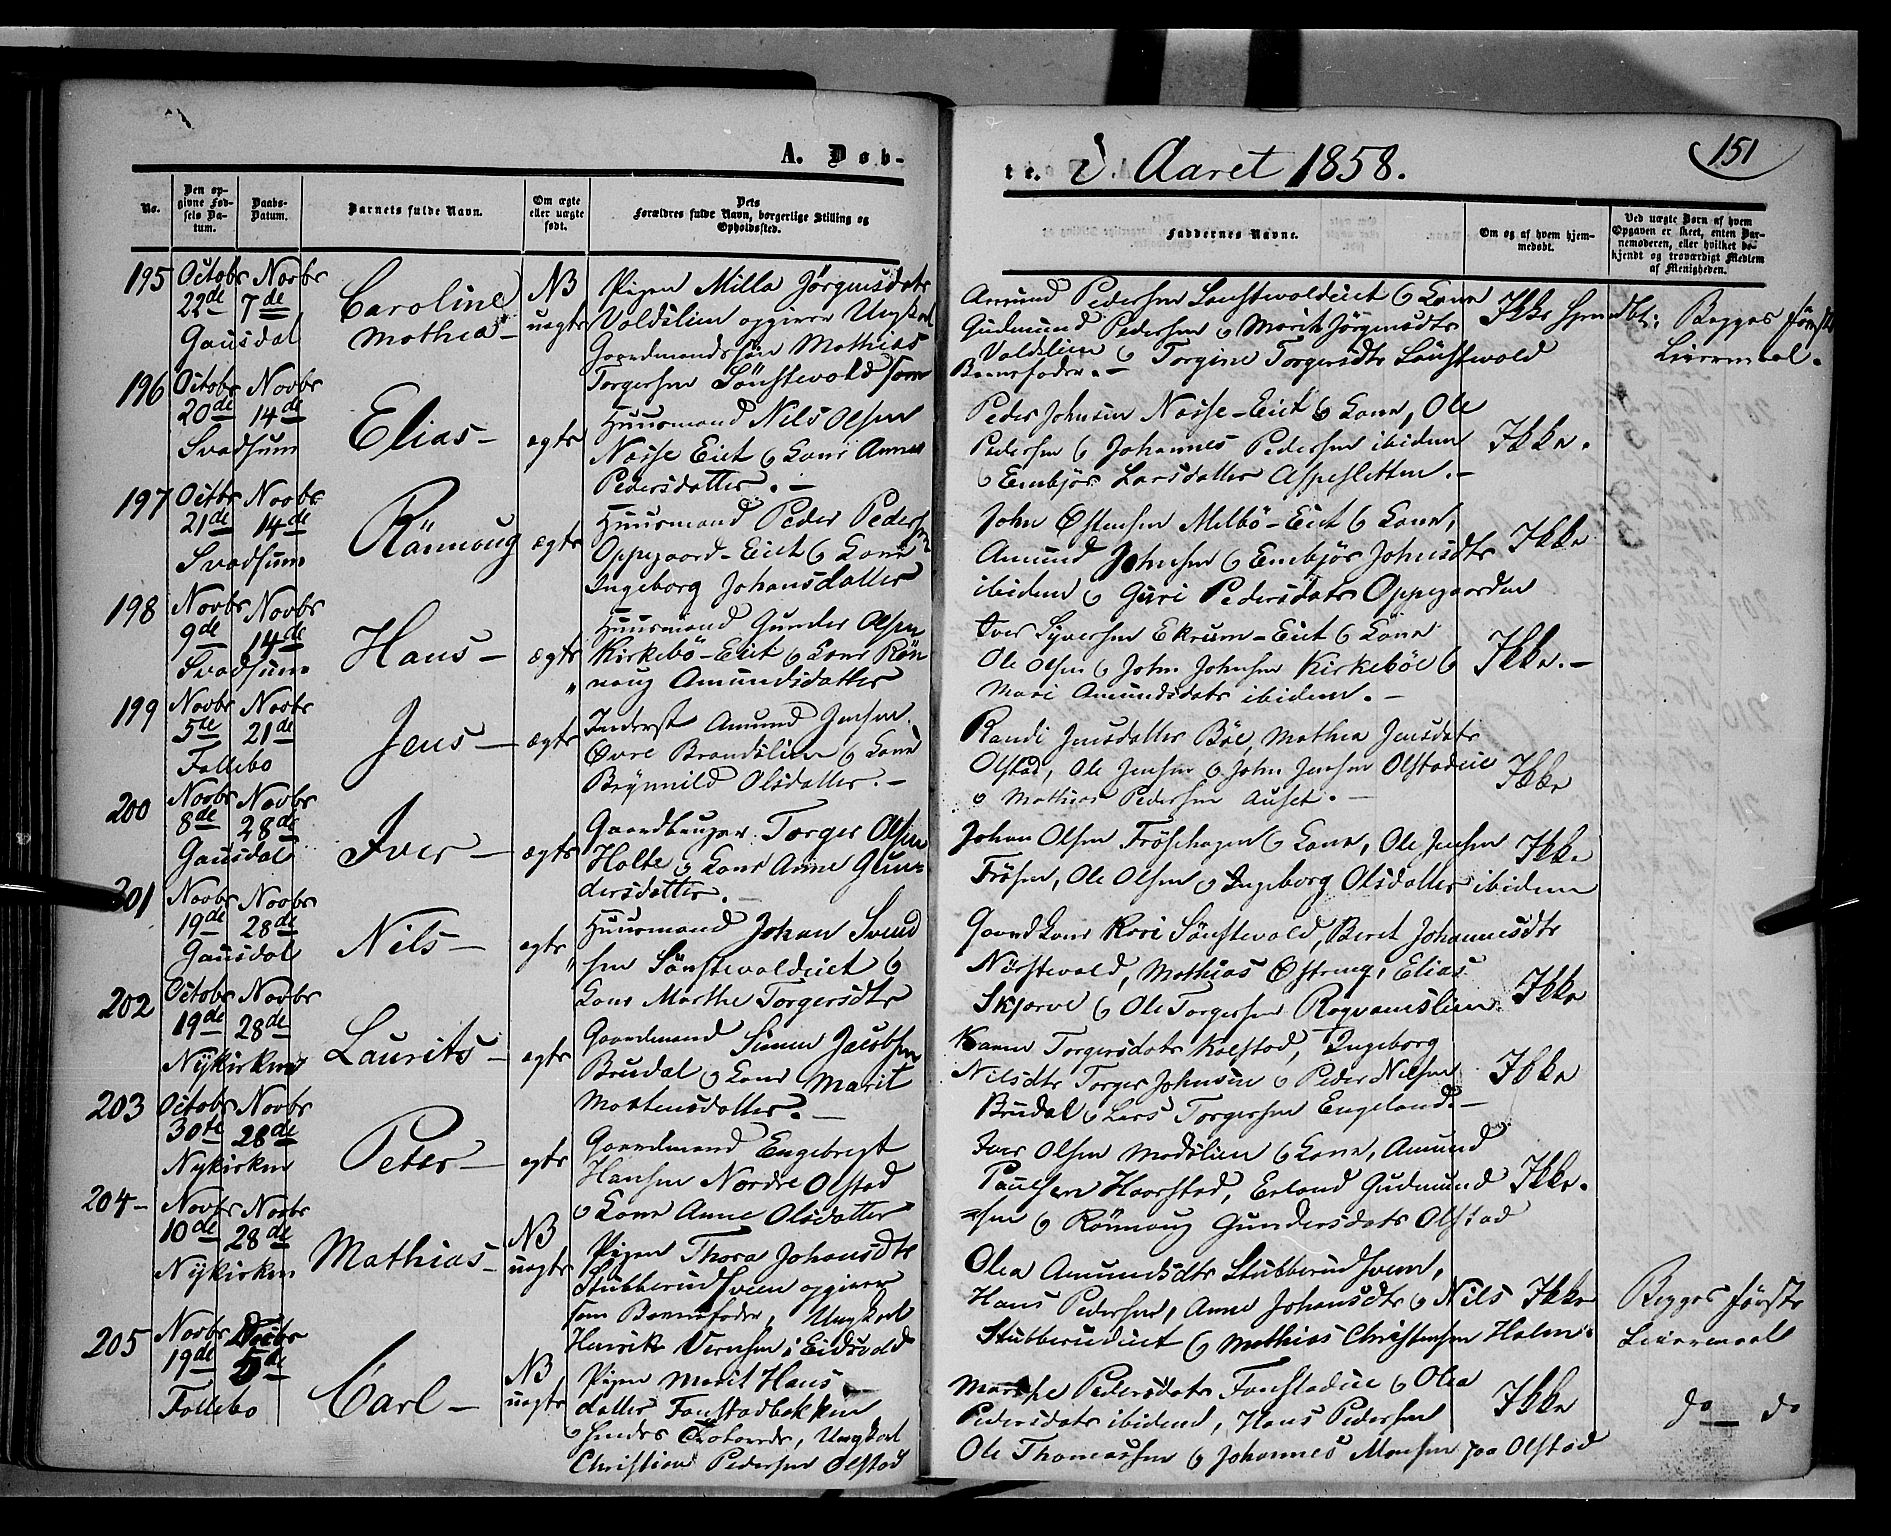 A. Døb-
te. i Aaret 1858.
151
No.
Den op-
givne Fød-
sels Da-
tum.
Daabs-
Datum.
Barnets fulde Navn.
Om ægte
eller uægte
født.
Dets
Forældres fulde Navn, borgerlige Stilling og
Opholdssted.
Faddernes Navne.
Om og af hvem hjem-
medøbt.
Ved uægte Børn af hvem
Opgaven er skeet, enten Bar-
nemoderen, eller hvilket be-
kjendt og troværdigt Medlem
af Menigheden.
195
Octobr
22de
Gausdal
Novbr
7de
Caroline
Mathea
NB
uægte
Pigen Milla Jörgensdatr
Valdslien opgiver Ungkarl
Gaardmandssön Mathias
Torgersen Sönstevold som
Amund Pedersen Sönstevoldeiet & Kone
Gudmund Pedersen & Marit Jörgensdtr
Valdslien & Torgine Torgersdtr Sönstevold
Barnefader. -
Ikke hjemdbt:
Begges förste
Leiermaal.
196
Octobr
20de
Svadsum
Novbr
14de
Elias -
ægte
Huusmand Nils Olsen
Nasse Eiet & Kone Anne
Pedersdatter. -
Peder Johnsen Nasse-Eiet & Kone, Ole
Pedersen & Johannes Pedersen ibidem
& Embjör Larsdatter Aspesletten. -
Ikke.
197
Octbr
21de
Svadsum
Novbr
14de
Rännoug
ægte
Huusmand Peder Pedersen
Oppegaard-Eiet & Kone
Ingeborg Johansdatter
John Östensen Melbö-Eiet & Kone,
Amund Johnsen & Embjör Johnsdtr
ibidem & Guri Pedersdatr Oppegaarden
Ikke
198
Novbr
9de
Svadsum
Novbr
14de
Hans -
ægte
Huusmand Gunder Olsen
Kirkebö-Eiet & Kone Rön
noug Amundsdatter
Iver Syversen Ekrum-Eiet & Kone
Ole Olsen & John Johnsen Kirkeböe &
Mari Amundsdatr ibidem. -
Ikke. -
199
Novbr
5te
Follebo
Novbr
21de
Jens -
ægte
Inderst Amund Jensen
Övre Brandslien & Kone
Brynnild Olsdatter. -
Randi Jensdatter Böe, Mathea Jensdatr
Olstad, Ole Jensen & John Jensen Olstadeie
& Mathias Pedersen Auset. -
Ikke
200
Novbr
8de
Gausdal
Novbr
28de
Iver -
ægte
Gaardbruger Torger Olsen
Holte & Kone Anne Gun-
dersdatter. -
Johan Olsen Frösehagen & Kone, Ole Jensen
Frösen, Ole Olsen & Ingeborg Olsdatter ibidem
Ikke
201
Novbr
19de
Gausdal
Novbr
28de
Nils -
ægte
Huusmand Johan Svend
sen Sönstevoldeiet &
Kone Marthe Torgersdtr
Gaardkone Kari Sönstevold, Beret Johannesdtr
Nörstevold, Mathias Östeng, Elias
Skjorve & Ole Torgersen Rogvamslien
Ikke
202
Octobr
19de
Nykirken
Novbr
28de
Laurits -
ægte
Gaardmand Simen Jacobsen
Brudal & Kone Marit
Mortensdatter. -
Karen Torgersdatr Kolstad, Ingeborg
Nilsdtr Torger Johnsen & Peder Nilsen
Brudal & Lars Torgersen Engeland. -
Ikke
203
Octobr
30te
Nykirken
Novbr
28de
Peter -
ægte
Gaardmand Engebregt
Hansen Nordre Olstad
& Kone Anne Olsdatter
Iver Olsen Modslien & Kone, Amund
Paulsen Haarstad, Erland Gudmund
=sen & Rönnoug Gundersdatr Olstad
Ikke.
204 -
Novbr
10de
Nykirken
Novbr
28de
Mathias -
NB
uægte
Pigen Thora Johansdtr
Stubberudsveen opgiver
som Barnefader, Ungkarl
Henrik Versen i Eidsvold
Olea Amundsdtr Stubberudsveen,
Hans Pedersen, Anne Johansdtr & Nils
Stubberudeiet & Mathias Christensen Holm.
Ikke
Begges förste
Leiermaal
205
Novbr
19de
Follebo
Decbr
5de
Carl -
NB
uægte
Pigen Marit Hans
datter Fonstadbakken
& hendes Trolovede, Ungkarl
Christian Pedersen Olstad
Marthe Pedersdatr Fonstadeie & Olea
Pedersdatr ibidem, Hans Pedersen
Ole Thomassen & Johannes Monsen paa Olstad
Ikke
do — do